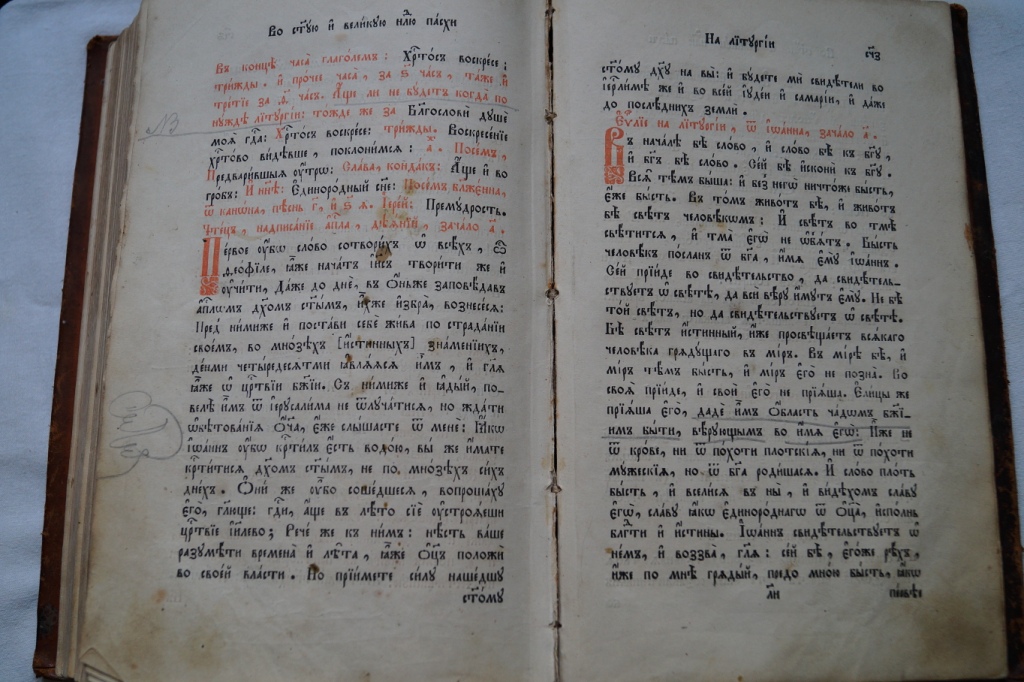 Во ст҃ꙋю и҆ вели́кꙋю нл҃ю па́схи
Въ концѣ̀ часа̀ глаго́лемъ: Хрⷭ҇то́съ воскре́се:
три́жды. И҆ про́чее часа̀, за ѕ҃ ча́съ, та́же и҆
тре́тїе за ѳ҃ ча́съ. А҆́ще ли не бꙋ́детъ когда̀ по
нꙋ́ждѣ лїтꙋргі́и: то́жде же за Бл҃гословѝ дꙋшѐ
моѧ̀ гдⷭ҇а: Хрⷭ҇то́съ воскре́се: три́жды. Воскресе́нїе
хрⷭ҇то́во ви́дѣвше, поклони́мсѧ: а҃. Посе́мъ,
Предвари́вшыѧ ᲂу҆́тро: Сла́ва, конда́къ: А҆́ще и҆ во
гро́бъ: И҆ ны́нѣ: Е҆диноро́дный сн҃е: Посе́мъ бл҃жє́нна,
ѿ кано́на, пѣ́снь г҃, и҆ ѕ҃ ѧ. І҆ере́й: Премꙋ́дрость.
Чте́цъ, надписа́нїе а҆пⷭ҇ла, дѣѧ́нїй, зача́ло а҃.
Пе́рвое ᲂу҆́бѡ сло́во сотвори́хъ ѡ҆ всѣ́хъ, ѽ
ѳео́фїле, ꙗ҆̀же нача́тъ і҆и҃съ твори́ти же и҆
ᲂу҆чи́ти, Да́же до днѐ, въ ѻ҆́ньже заповѣ́давъ
а҆пⷭ҇лѡмъ дх҃омъ ст҃ы́мъ, и҆̀хже и҆збра̀, вознесе́сѧ:
Пред̾ ни́миже и҆ поста́ви себѐ жи́ва по страда́нїи
свое́мъ, во мно́зѣхъ [и҆́стинныхъ] зна́менїихъ,
де́ньми четы́редесѧтьми ꙗ҆влѧ́ѧсѧ и҆̀мъ, и҆ гл҃ѧ
ꙗ҆̀же ѡ҆ црⷭ҇твїи бж҃їи. Съ ни́миже и҆ ꙗ҆ды́й, по-
велѣ̀ и҆̀мъ ѿ і҆ерⷭ҇али́ма не ѿлꙋча́тисѧ, но жда́ти
ѡ҆бѣтова́нїѧ ѻ҆́ч҃а, є҆́же слы́шасте ѿ менѐ: Ꙗ҆́кѡ
і҆ѡа́ннъ ᲂу҆́бѡ крⷭ҇ти́лъ є҆́сть водо́ю, вы́ же и҆́мате
крⷭ҇ти́тисѧ дх҃омъ ст҃ы́мъ, не по мно́зѣхъ си́хъ
дне́хъ. Ѻ҆ни́ же ᲂу҆́бѡ соше́дшесѧ, вопроша́хꙋ
є҆го̀, гл҃юще: гдⷭ҇и, а҆́ще въ лѣ́то сїѐ ᲂу҆строѧ́еши
црⷭ҇твїе і҆и҃лево; Рече́ же къ ни́мъ: нѣ́сть ва́ше
разꙋмѣ́ти времена̀ и҆ лѣ̑та, ꙗ҆̀же ѻ҆ц҃ъ положѝ
во свое́й вла́сти. Но прїи́мете си́лꙋ наше́дшꙋ
ст҃о́мꙋ
На лїтꙋргі́и
сч҃з
ст҃о́мꙋ дх҃ꙋ на вы̀: и҆ бꙋ́дете мѝ свидѣ́тели во
і҆ерⷭ҇ли́мѣ же и҆ во все́й і҆ꙋде́и и҆ самарі́и, и҆ да́же
до послѣ́днихъ землѝ.
Е҆ѵⷢ҇лїе на лїтꙋргі́и, ѿ і҆ѡа́нна, зача́ло а҃.
Въ нача́лѣ бѣ̀ сло́во, и҆ сло́во бѣ̀ къ бг҃ꙋ,
и҆ бг҃ъ бѣ̀ сло́во. Се́й бѣ̀ и҆сконѝ къ бг҃ꙋ.
Всѧ̑ тѣ́мъ бы́ша: и҆ без̾ негѡ̀ ничто́же бы́сть,
є҆́же бы́сть. Въ то́мъ живо́тъ бѣ̀, и҆ живо́тъ
бѣ̀ свѣ́тъ человѣ́кѡмъ: И҆ свѣ́тъ во тмѣ̀
свѣ́титсѧ, и҆ тма̀ є҆гѡ̀ не ѡ҆б̾ѧ́тъ. Бы́сть
человѣ́къ по́сланъ ѿ бг҃а, и҆́мѧ є҆мꙋ̀ і҆ѡа́ннъ.
Се́й прїи́де во свидѣ́тельство, да свидѣ́тель-
ствꙋетъ ѡ҆ свѣ́тѣ, да всѝ вѣ́рꙋ и҆́мꙋтъ є҆мꙋ̀. Не бѣ̀
то́й свѣ́тъ, но да свидѣ́тельствꙋетъ ѡ҆ свѣ́тѣ.
Бѣ̀ свѣ́тъ и҆́стинный, и҆́же просвѣща́етъ всѧ́каго
человѣ́ка грѧдꙋ́щаго въ мі́ръ. Въ мі́рѣ бѣ̀, и҆
мі́ръ тѣ́мъ бы́сть, и҆ мі́ръ є҆гѡ̀ не позна̀. Во
своѧ̑ прїи́де, и҆ своѝ є҆гѡ̀ не прїѧ́ша. Е҆ли́цы же
прїѧ́ша є҆го̀, дадѐ и҆̀мъ ѻ҆́бласть ча́дѡмъ бж҃їи-
имъ бы́ти, вѣ́рꙋющымъ во и҆́мѧ є҆гѡ̀: И҆̀же не
ѿ кро́ве, ни ѿ по́хоти плотскі́ѧ, ни ѿ по́хоти
мꙋ́жескїѧ, но ѿ бг҃а роди́шасѧ. И҆ сло́во пло́ть
бы́сть, и҆ всели́сѧ въ ны̀, и҆ ви́дѣхомъ сла́вꙋ
є҆гѡ̀, сла́вꙋ ꙗ҆́кѡ є҆диноро́днагѡ ѿ ѻ҆ц҃а̀, и҆спо́лнь
блгⷣти и҆ и҆́стины. І҆ѡа́ннъ свидѣ́тельствꙋетъ ѡ҆
не́мъ, и҆ воззва̀, гл҃ѧ: се́й бѣ̀, є҆го́же рѣ́хъ,
и҆́же по мнѣ̀ грѧды́й, предо мно́ю бы́сть, ꙗ҆́кѡ